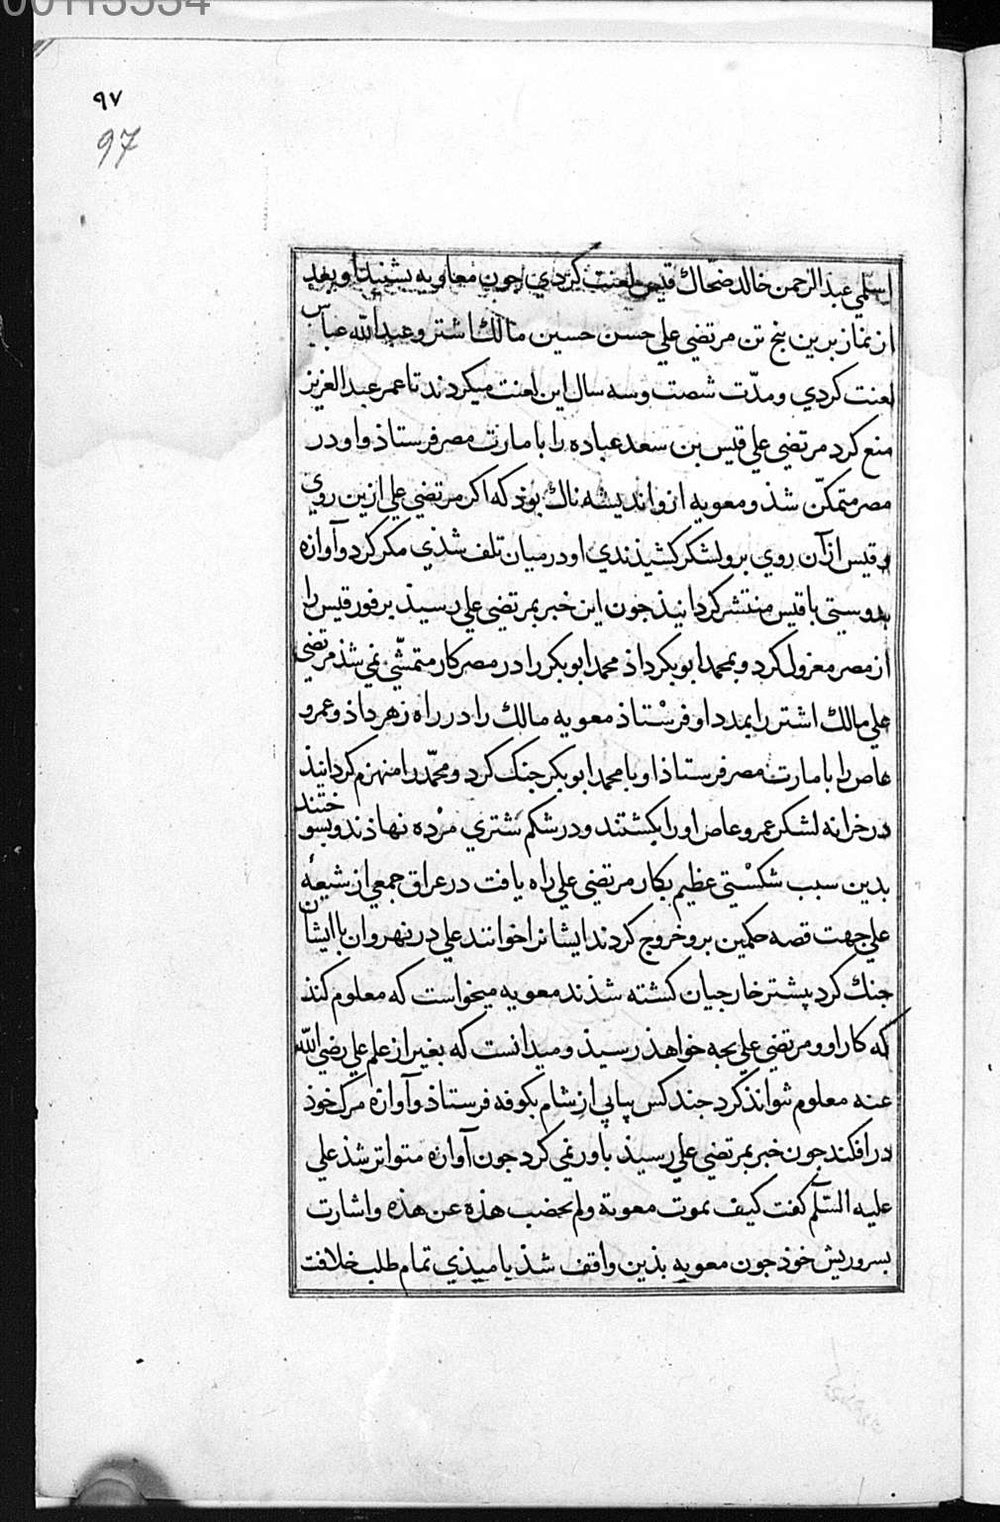 00113534
٩٧
97
اسلمی عبدالرحمن خالد ضحّاك قیس لعنت کردي جون معاویه بشنید او بعد
از نماز برین پنج تن مرتضی علي حسن حسین مالك اشتر و عبدالله عباس
لعنت کردي و مدّت شصت و سه سال این لعنت میکردند تا عمر عبدالعزیز
منع کرد مرتضی علي قیس بن سعد عباده را بامارت مصر فرستاذ و او در
مصر متمکّن شذ و معویه ازو اندیشه ناك بوذ که اکر مرتضی علي ازین روي
و قیس از آن روي برو لشکر کشیذندي او در میان تلف شذي مکر کرد و آوازه
بدوستی با قیس منتشر کردانیذ جون این خبر بمرتضی علي رسیذ بر فور قیس را
از مصر معزول کرد و بمحمد ابو بکر داذ محمد ابو بکر را در مصر کار متمشّی نمي شذ مرتضی
علي مالك اشتر را بمدد او فرستاذ معویه مالك را در راه زهر داذ و عمرو
عاص را بامارت مصر فرستاذ او با محمد ابو بکر جنك کرد و محمّد را منهزم کردانیذ
در خرابه لشکر عمرو عاص اورا بکشتند و در شکم شتري مرْده نهاذند و بسوختند
بدین سبب شکستی عظیم بکار مرتضی علي راه یافت در عراق جمعي از شیعهٔ
علي جهت قصه حکمین برو خروج کردند ایشانرا خوانند علي در نهروان با ایشان
جنك کرد بیشتر خارجیان کشته شذند معویه میخواست که معلوم کنذ
که کار او و مرتضی علي بجه خواهذ رسیذ و میدانست که بغیر از علم علي رضي الله
عنه معلوم نتواند کرد جند کس پیاپي از شام بکوفه فرستاذ و آوازه مرك خوذ
در افکند جون خبر بمرتضی علي رسیذ باور نمي کرد جون آوازه متواتر شذ علي
علیه السّلم کفت کیف یموت معویة ولم یخضب هذه عن هذه و اشارت
بسر و ریش خوذ جون معویه بذین واقف شذ بامیذي تمام طلب خلافت